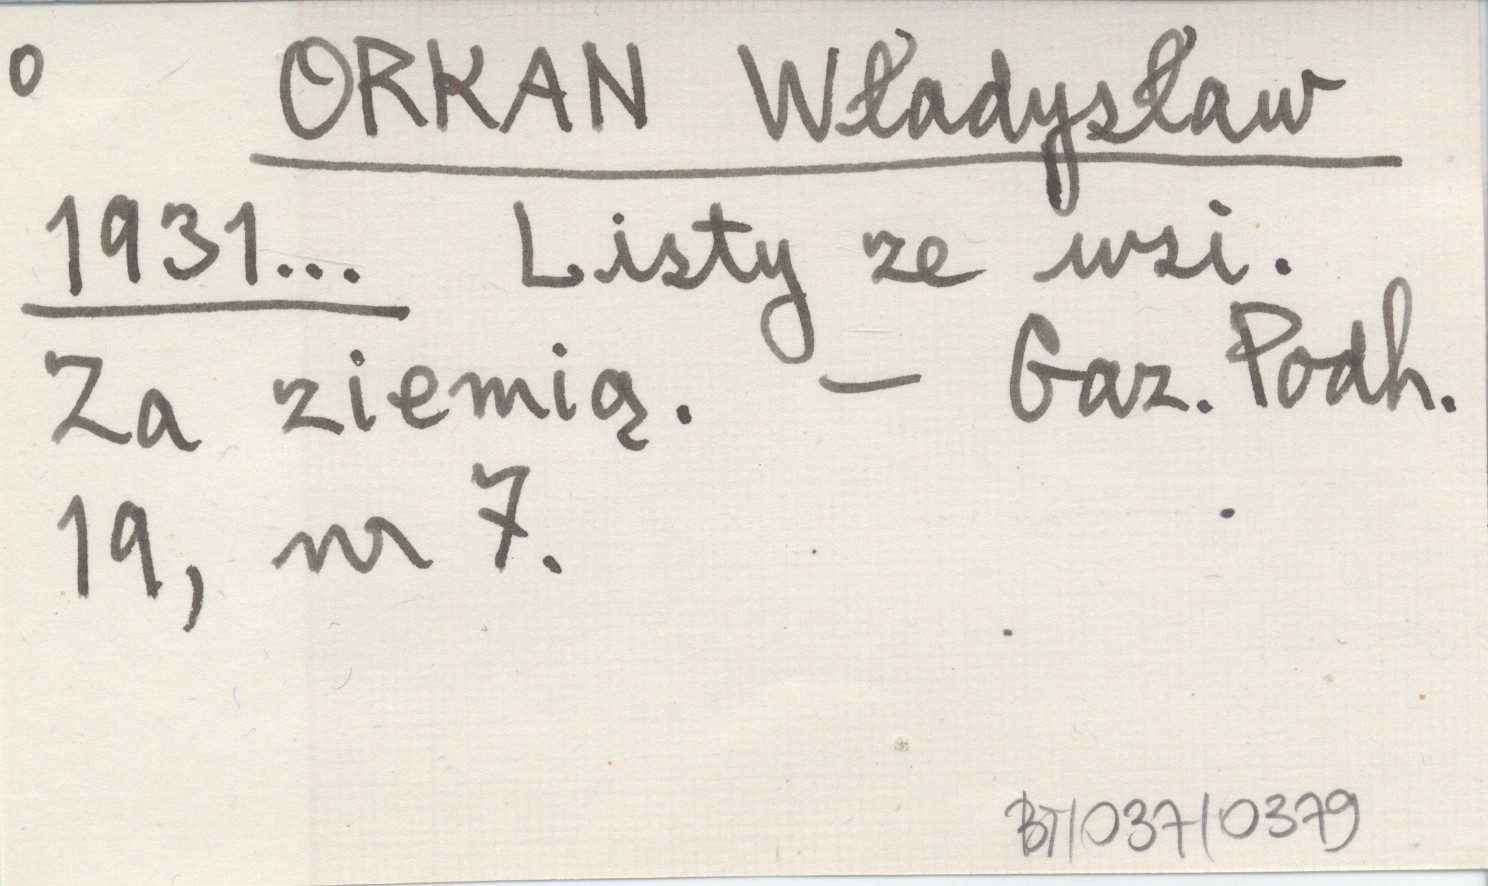 o ORKAN Władysław
1931... Listy ze wsi.
Za ziemią. — Gaz. Podh.
19, nr 7.
BT/037/0379